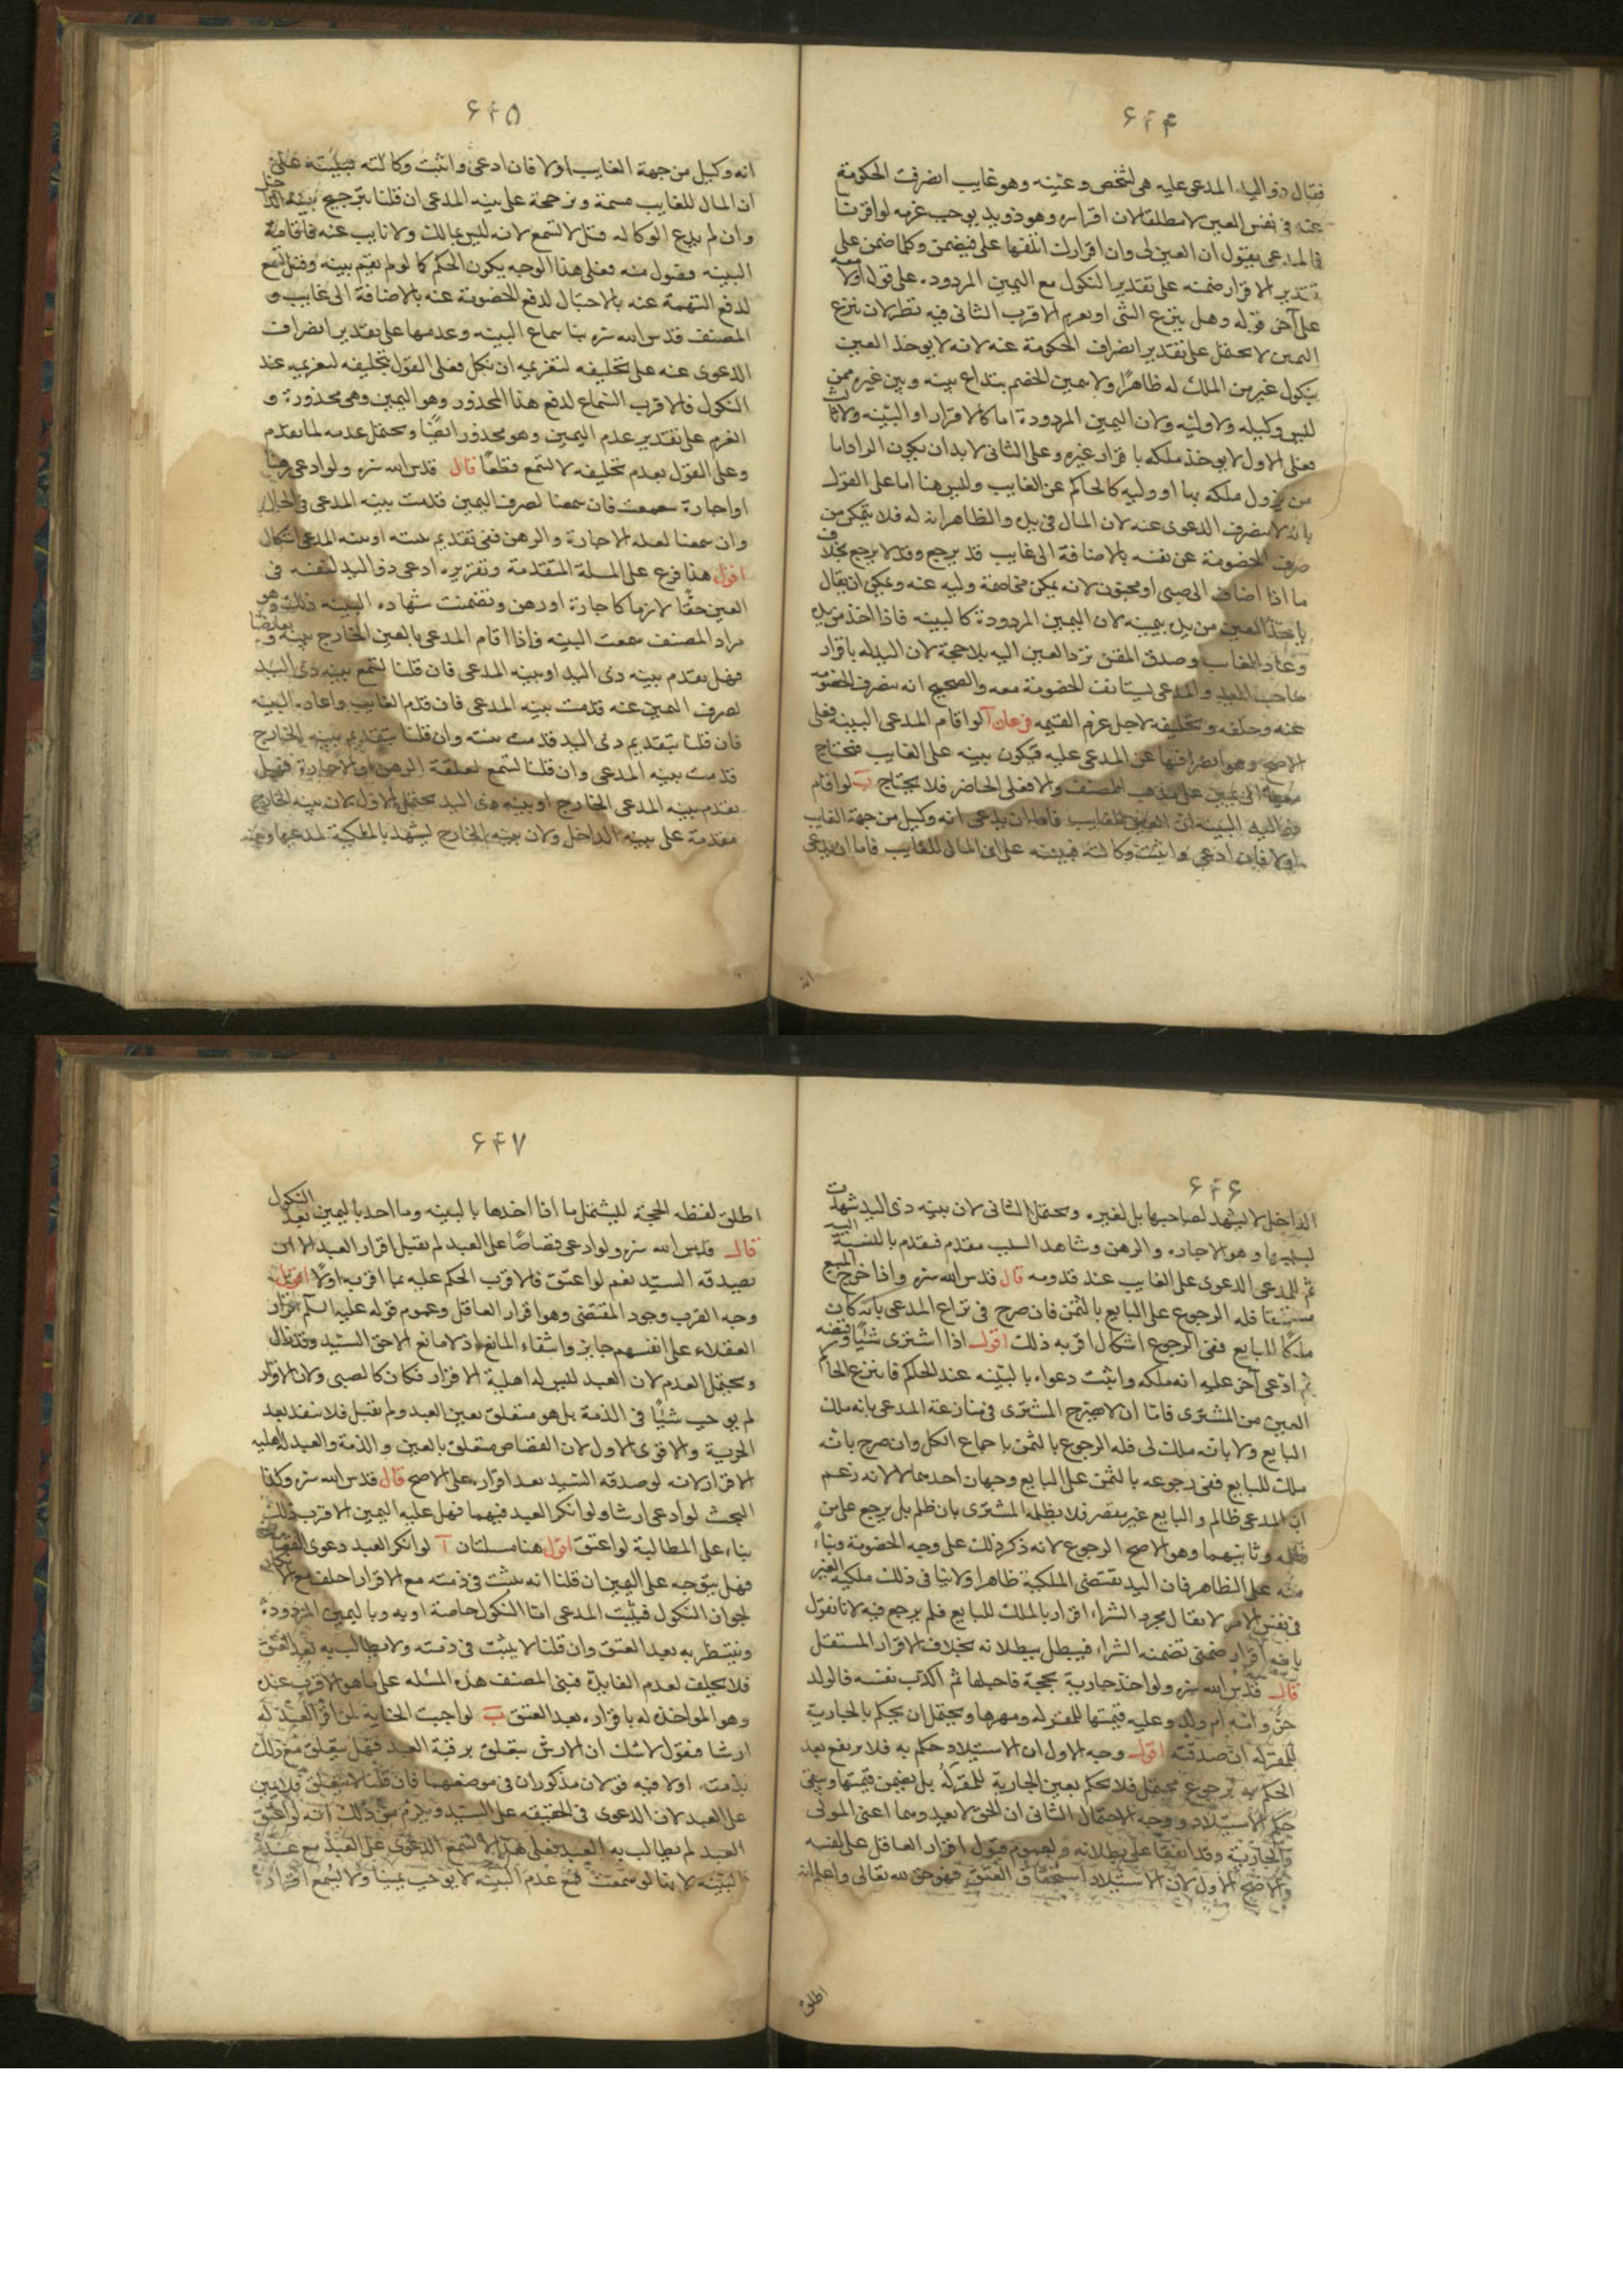 ۶۴۴
فقال ذو اليد المدعى عليه هى لشخص وعينه وهو غايب انصرفت الحكومة
عنه فى نفس العين لا مطلقا لان اقراره وهو ذو يد يوجب غرمه لو اقر
فالمدعى يقول ان العين لى وان اقرارك اتلفها على فيضمن وكلما ضمن على
تقدير الاقرار ضمنه على تقدير النكول مع اليمين المردودة على قوله اولا
على آخر قوله وهل ينزع الشى او يغرم الاقرب الثانى فيه نظر لان نزع
اليمين لا يحتمل على تقدير انصراف الحكومة عنه لانه لا يوخذ العين
بنكول غير من الملك له ظاهرا ولا بيمين الخصم بتداع بينه وبين غيره ممن
ليس وكيله ولا وليه ولان اليمين المردودة اما كالاقرار او البينه
فعلى الاول لا يوخذ ملكه باقرار غيره وعلى الثانى لا بد ان يكون
من يزول ملكه بها او وليه كالحاكم عن الغايب وليس هنا اما على القول
بانه لا ينصرف الدعوى عنه لان المال فى يده والظاهر انه له فلا يتمكن من
صرف الخصومة عن نفسه بالاضافة الى غايب قد يرجع وقد لا يرجع بخلاف
ما اذا اضاف الى صبى او مجنون لانه يمكن مخاصمة وليه عنه ويمكن ان يقال
ياخذ العين من يده بيمينه لان اليمين المردودة كالبينه فاذا اخذ من يده
وعاد الغايب وصدق المقر يرد العين اليه بلا حجة لان اليد له باقرار
صاحب اليد والمدعى يستانف الخصومة معه والصحيح انه ينصرف الخصومة
عنه وحلفه وتحليفه لاجل غرم القيمه فرعان آ لو اقام المدعى البينه فعلى
الاصح وهو انصرافها عن المدعى عليه فيكون بينه على الغايب فيحتاج
معها الى يمين على مذهب المصنف والا فعلى الحاضر فلا يحتاج ب لو اقام
ذو اليد البينه ان العين للغايب فاما ان يدعى انه وكيل من جهة الغايب
اولا فان ادعى واثبت وكالته فبينته على ان المال للغايب فاما ان يدعى
انه
۶۴۵
انه وكيل من جهة الغايب اولا فان ادعى واثبت وكالته فبينته على
ان المال للغايب مسمعة ومرجحة على بينه المدعى ان قلنا بترجيح بينه الداخل
وان لم يدع الوكاله قيل لا تسمع لانه ليس بمالك ولا نايب عنه فاقامة
البينه فضول منه فعلى هذا الوجه يكون الحكم كما لو لم يقم بينه وقيل تسمع
لدفع التهمة عنه بالاحتيال لدفع الخصومة عنه بالاضافة الى غايب و
المصنف قدس الله سره بنا سماع البينه وعدمها على تقدير انصراف
الدعوى عنه على تحليفه لتغريمه ان نكل فعلى القول بتحليفه لتغريمه عند
النكول فالاقرب السماع لدفع هذا المحذور وهو اليمين وهى محذورة و
الغرم على تقدير عدم اليمين وهو محذور ايضا ويحتمل عدمه لما تقدم
وعلى القول بعدم تحليفه لا تسمع قطعا قال قدس الله سره ولو ادعى رهنا
او اجارة سمعت فان سمعنا لصرف اليمين قدمت بينه المدعى فى الحال
وان سمعنا لعلة الاجارة والرهن ففى تقديم بينته او بينه المدعى اشكال
اقول هذا فرع على المسلة المتقدمة وتقريره ادعى ذو اليد لنفسه فى
العين حقا لازما كاجارة او رهن وتضمنت شهاده البينه ذلك وهو
مراد المصنف سمعت البينه فاذا اقام المدعى بالعين الخارج بينه
فهل تقدم بينه ذى اليد او بينه المدعى فان قلنا تسمع بينه ذى اليد
لصرف اليمين عنه قدمت بينه المدعى فان قدم الغايب واعاد البينه
فان قلنا بتقديم ذى اليد قدمت بينته وان قلنا بتقديم بينه الخارج
قدمت بينه المدعى وان قلنا تسمع لعلقة الرهن او الاجارة فهل
تقدم بينه المدعى الخارج او بينه ذى اليد يحتمل الاول لان بينه الخارج
مقدمة على بينه الداخل ولان بينه الخارج يشهد بالملكية لمدعيها وبينه
۶۴۶
الداخل لا يشهد لصاحبها بل لغيره ويحتمل الثانى لان بينه ذى اليد شهدت
لسببها وهو الاجاره والرهن وشاهد السبب مقدم فيقدم بالنسبة اليه
ثم للمدعى الدعوى على الغايب عند قدومه قال قدس الله سره واذا خرج المبيع
مستحقا فله الرجوع على البايع بالثمن فان صرح فى نزاع المدعى بانه كان
ملكا للبايع ففى الرجوع اشكال اقربه ذلك اقول اذا اشترى شيئا وقبضه
ثم ادعى آخر عليه انه ملكه واثبت دعواه بالبينه عند الحكم فانتزع الحاكم
العين من المشترى فاما ان لا يصرح المشترى فى منازعة المدعى بانه ملك
البايع ولا بانه ملك لى فله الرجوع بالثمن باجماع الكل وان صرح بانه
ملك للبايع ففى رجوعه بالثمن على البايع وجهان احدهما لا لانه زعم
ان المدعى ظالم والبايع غير مقصر فلا يظلمه المشترى بان ظلم بل يرجع على من
ظلمه وثانيهما وهو الاصح الرجوع لانه ذكر ذلك على وجه الخصومة وبناء
منه على الظاهر فان اليد تقتضى الملكية ظاهرا ولا ينافى ذلك ملكيه الغير
فى نفس الامر لا يقال مجرد الشراء اقرار بالملك للبايع فلم يرجع فيه لانا نقول
بانه اقرار ضمنى تضمنه الشراء فيبطل ببطلانه بخلاف الاقرار المستقل
قال قدس الله سره ولو اخذ جارية بحجة فاحبلها ثم اكذب نفسه فالولد
حر وامه ام ولد وعليه قيمتها للمقر له ومهرها ويحتمل ان يحكم بالجارية
للمقر له ان صدقته اقول وجه الاول ان الاستيلاد حكم به فلا يرتفع بعد
الحكم به برجوع محتمل فلا يحكم بعين الجارية للمقر له بل يضمن قيمتها ويبقى
حكم الاستيلاد ووجه الاحتمال الثانى ان الحق لا يعدوهما اعنى المولى
والجارية وقد اتفقا على بطلانه ولعموم قبول اقرار العاقل على نفسه
والاصح الاول لان الاستيلاد استحقاق العتق فهو حق لله تعالى واعلم انه
اطلق
۶۴۷
اطلق لفظه الحجة ليشتمل ما اذا اخذها بالبينه وما اخذ باليمين بعد النكول
قال قدس الله سره ولو ادعى قصاصا على العبد لم يقبل اقرار العبد الا ان
يصدقه السيد نعم لو اعتق فالاقرب الحكم عليه بما اقر به اولا اقول
وجه القرب وجود المقتضى وهو اقرار العاقل وعموم قوله عليه السلم اقرار
العقلاء على انفسهم جايز وانتفاء المانع اذ لا مانع الا حق السيد وقد زال
ويحتمل العدم لان العبد ليس له اهلية الاقرار فكان كالصبى ولان الاقرار
لم يوجب شيئا فى الذمة بل هو متعلق بعين العبد ولم يقبل فلا ينفذ بعد
الحرية والاقوى الاول لان القصاص متعلق بالعين والذمة والعبد له اهليه
الاقرار لانه لو صدقه السيد بعد اقراره على الاصح قال قدس الله سره وكذا
البحث لو ادعى ارشا ولو انكر العبد فيهما فهل عليه اليمين الاقرب ذلك
بناء على المطالبة لو اعتق اقول هنا مسلتان آ لو انكر العبد دعوى القصاص
فهل يتوجه على اليمين ان قلنا انه يثبت فى ذمته مع الاقرار احلف مع الانكار
لجواز النكول فيثبت المدعى اما النكول خاصة او به وباليمين المردودة
وينتظر به بعد العتق وان قلنا لا يثبت فى ذمته ولا يطالب به بعد العتق
فلا يحلف لعدم الفايدة فبنى المصنف هذه المسئله على ما هو الاقرب عنده
وهو المواخذه له باقراره بعد العتق ب لو اوجبت الجناية لمن اقر العبد له
ارشا فنقول لا شك ان الارش يتعلق برقبة العبد فهل يتعلق مع ذلك
بذمته اولا فيه قولان مذكوران فى موضعهما فان قلنا لا يتعلق فلا يمين
على العبد لان الدعوى فى الحقيقه على السيد ويلزم من ذلك انه لو اعتق
العبد لم يطالب به العبد فعلى هذا لا تسمع الدعوى على العبد مع عدم
البينه لانها لو سمعت فمع عدم البينه لا يوجب يمينا ولا يسمع اقراره